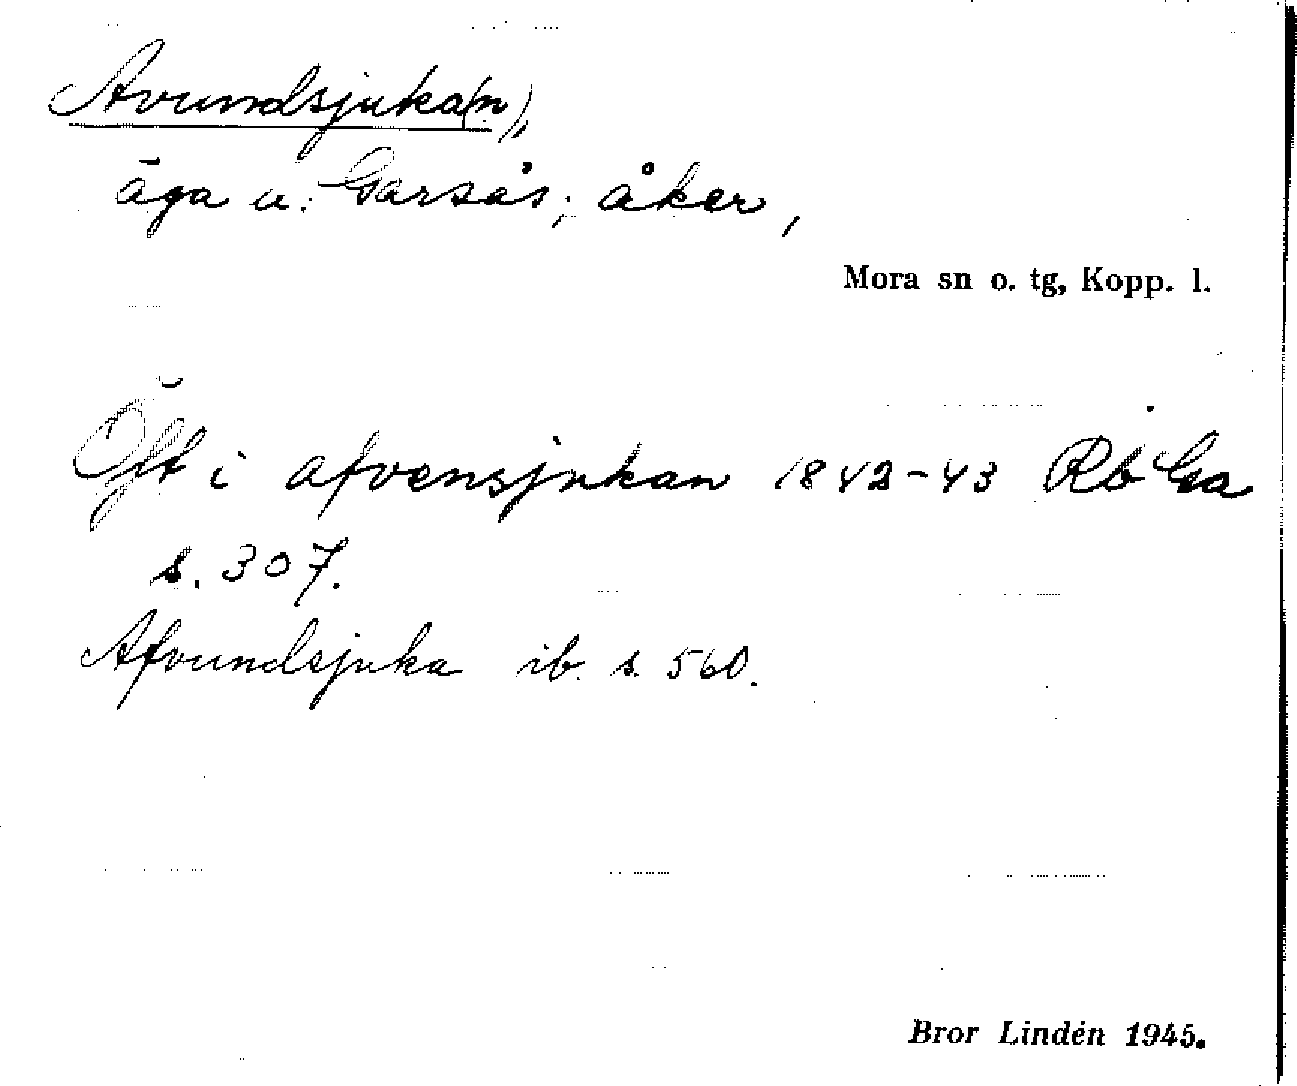 Avundsjuka(n),
äga u. Garsås; åker,
Mora sn o. tg, Kopp. l.
Öft i afvensjukan 1842-43 Rb Ga
s. 307.
Afvundsjuka ib. s. 560.
Bror Lindén 1945.